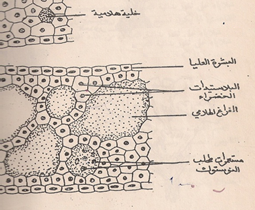 خلية هلامية
البشرة العليا
البلاستيدات
الخضراء
الفراغ الهلامي
مستعمرات طحلب
النوستوك